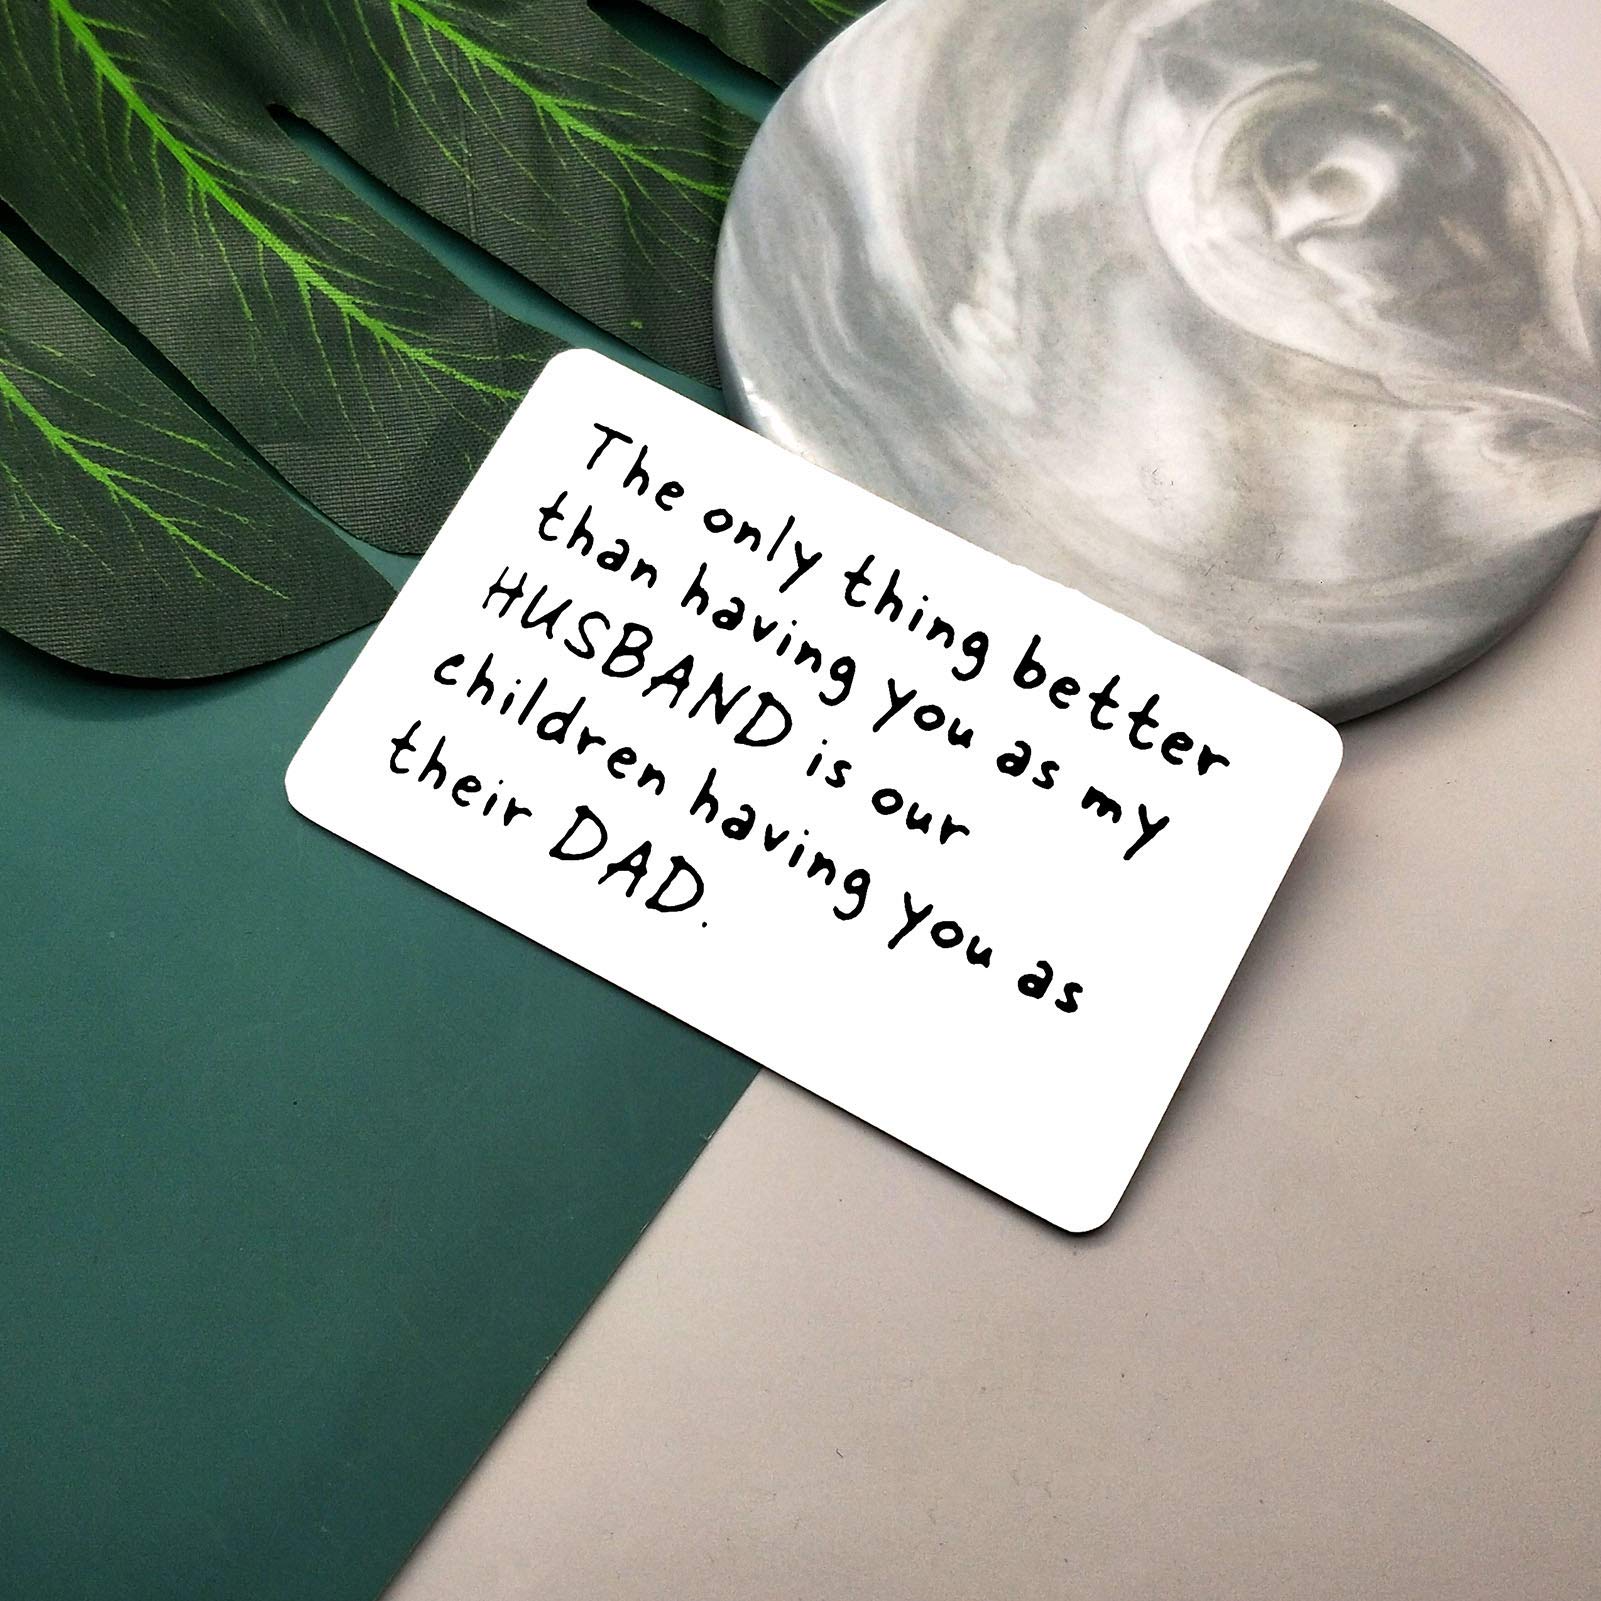 The only thing better
than having you as my
HUSBAND is our
children having you as
their DAD.